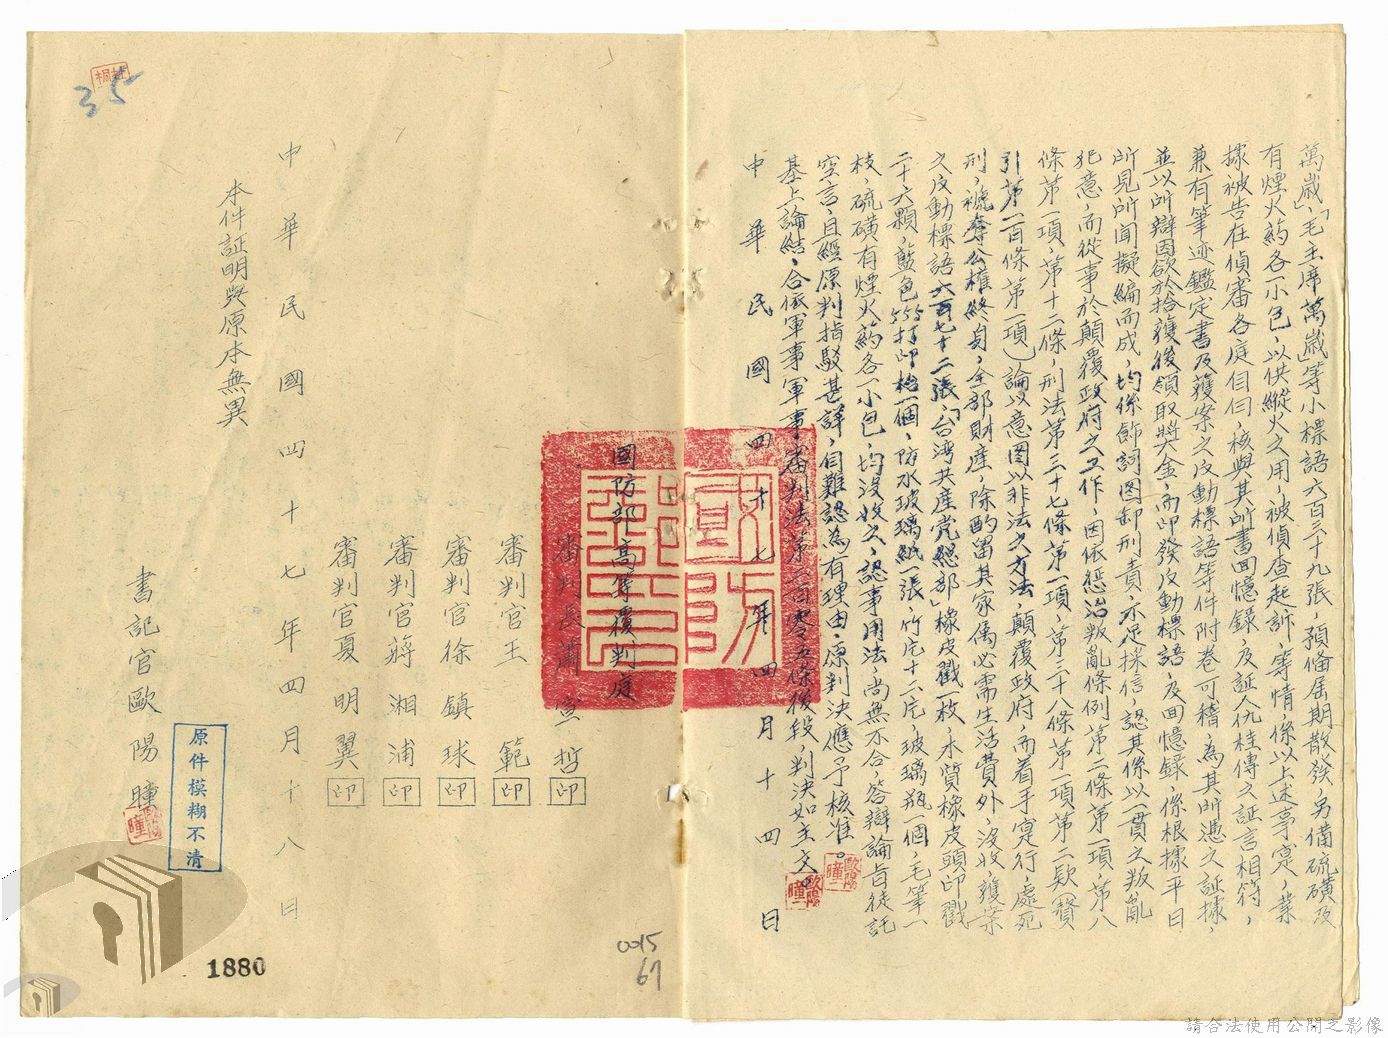 萬歲」、「毛主席萬歲」等小標語六百三十九張，預備屆期散發，另備硫磺及
有煙火药各一小包，以供縱火之用，被偵查起訴，等情，係以上述事寔，業
據被告在偵審各庭自白，核與其所書回憶錄，及証人仇桂傳之証言相符，
兼有筆迹鑑定書及獲案之反動標語等件附卷可稽，為其所憑之証據，
並以所辯因欲於拾獲後領取奬金，而印發反動標語，及回憶錄，係根據平日
所見所聞擬編而成，均係飾詞图卸刑責，亦足採信，認其係以一貫之叛亂
犯意，而從事於顛覆政府之工作，因依惩治叛亂條例第二條第一項，第八
條第一項，第十二條，刑法第三十七條第一項，第三十八條第一項第二款（贅
引第一百條第一項）論以意图以非法之方法，顛覆政府，而着手寔行，處死
刑，褫奪公權終身，全部財產，除酌留其家屬必需生活費外，沒收，獲案
之反動標語六百七十二張，「台湾共產党總部」橡皮戳一枚，木質橡皮頭印戳
二十六顆，藍色555打印枱一個，防水玻璃紙一張，竹片十二片，玻璃瓶一個，毛筆一
枝，硫磺有煙火药各一小包，均沒收之，認事用法，尚無不合，答辯論旨徒託
空言，且經原判指駁甚詳，自難認為有理由，原判決應予核准。
基上論結，合依軍事軍事審判法第二百零五條後段，判決如主文。
中華民國四十七年四月十四日
國防部高等覆判庭
審判長蕭宣哲 印
審判官王範 印
審判官徐鎮球 印
審判官蔣湘浦 印
審判官夏明翼 印
中華民國四十七年四月十八日
本件証明與原本無異
書記官歐陽瞳
原件模糊不清
35
1880
0015
67
請合法使用公開之影像